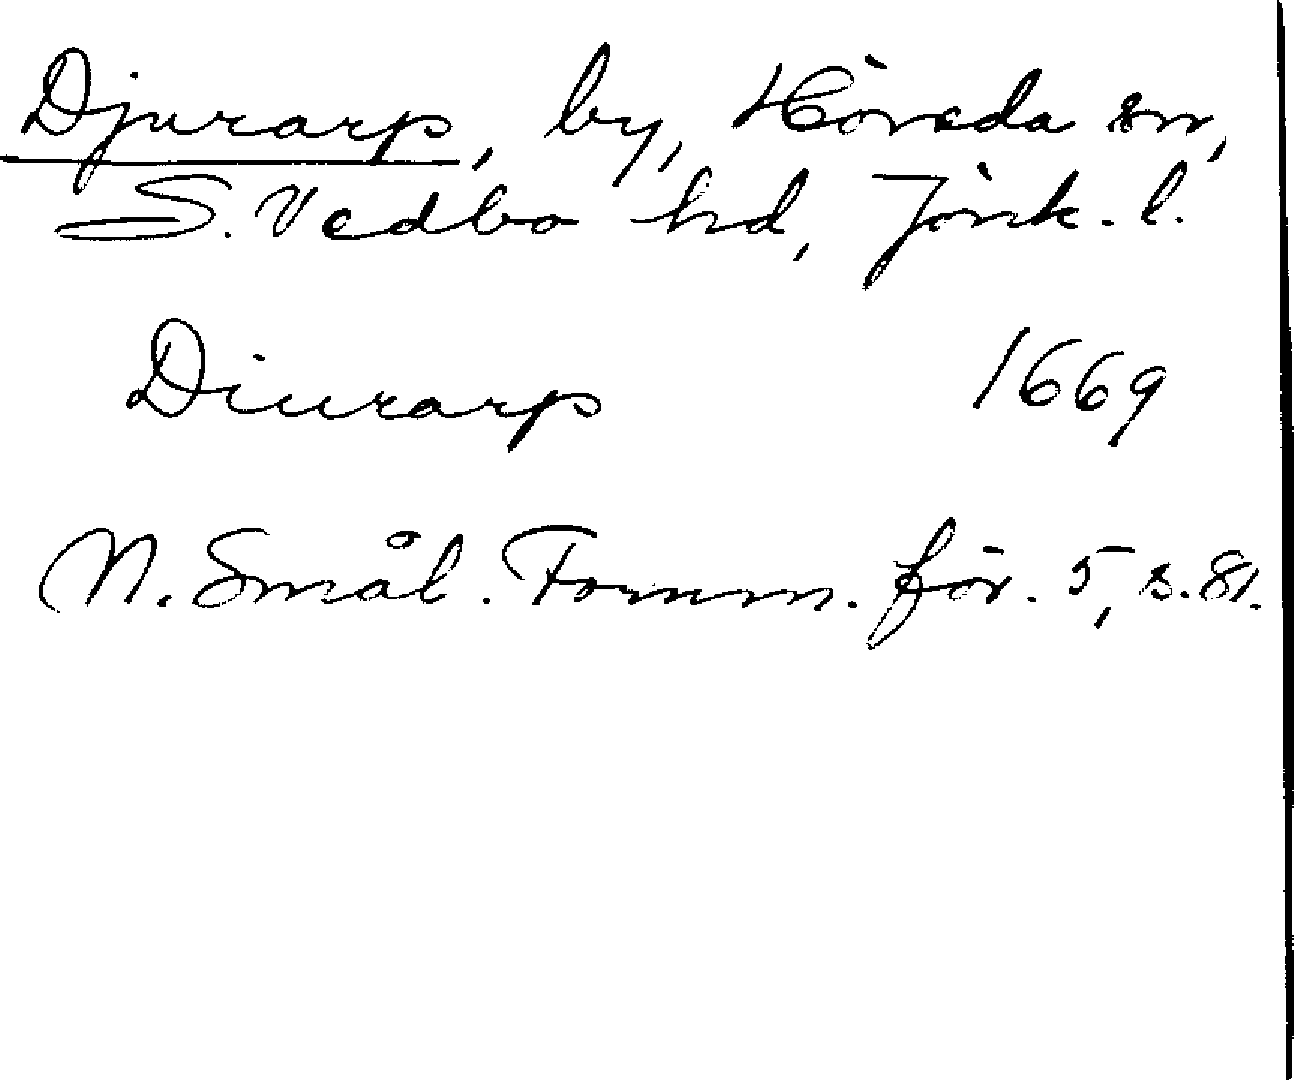 Djurarp, by, Höreda sn,
S. Vedbo hd, Jönk. l.
Diurarp 1669
N. Smål. Fornm. för. 5, s. 81.